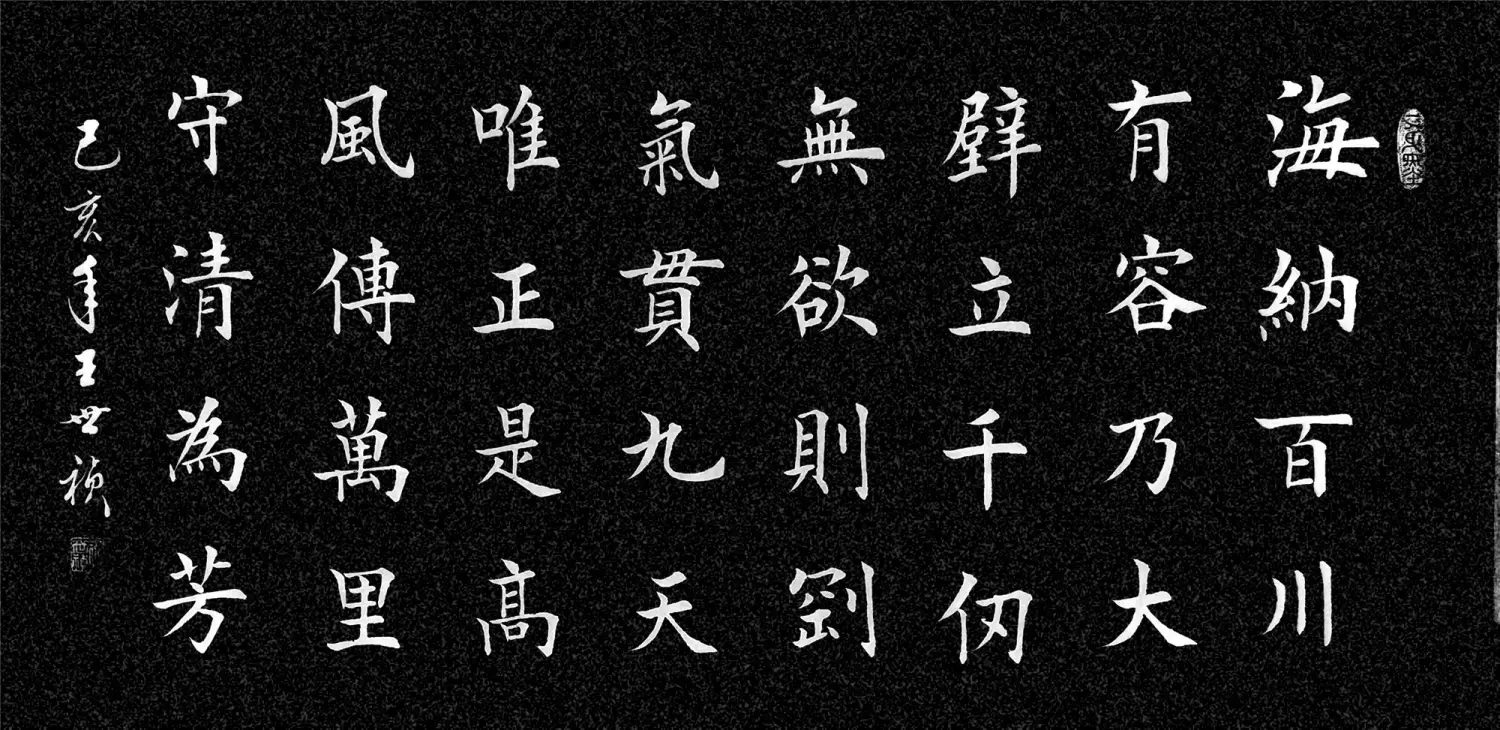 海納百川
有容乃大
壁立千仞
無欲則剛
氣貫九天
唯正是髙
風傳萬里
守清為芳
己亥年王世禎